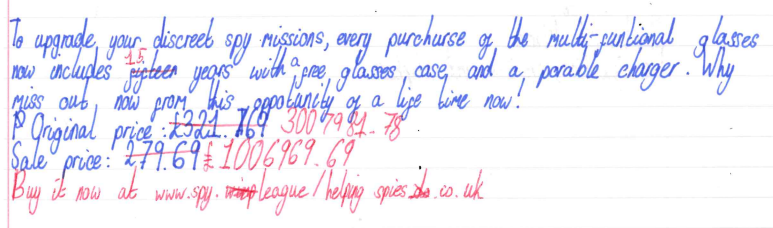 To upgrade your discreet spy missions, every purchurse of the multi-funtional glasses
now includes 15 fifteen years with a free glasses case and a porable charger. Why
miss out now from this oppotunity of a life time now!
P Original price: £321.769 3007981.78
Sale price: 279.69 £1006969.69
Buy it now at www.spy.league/helping spies.co.uk